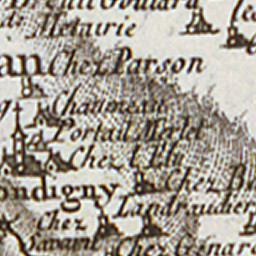 di Metairie
an Chez Parson
Chaumeau
Portail Merlet
Chez l'Elu
ondigny Chez B
Landraudier
Chez
Savarit Chez Genard